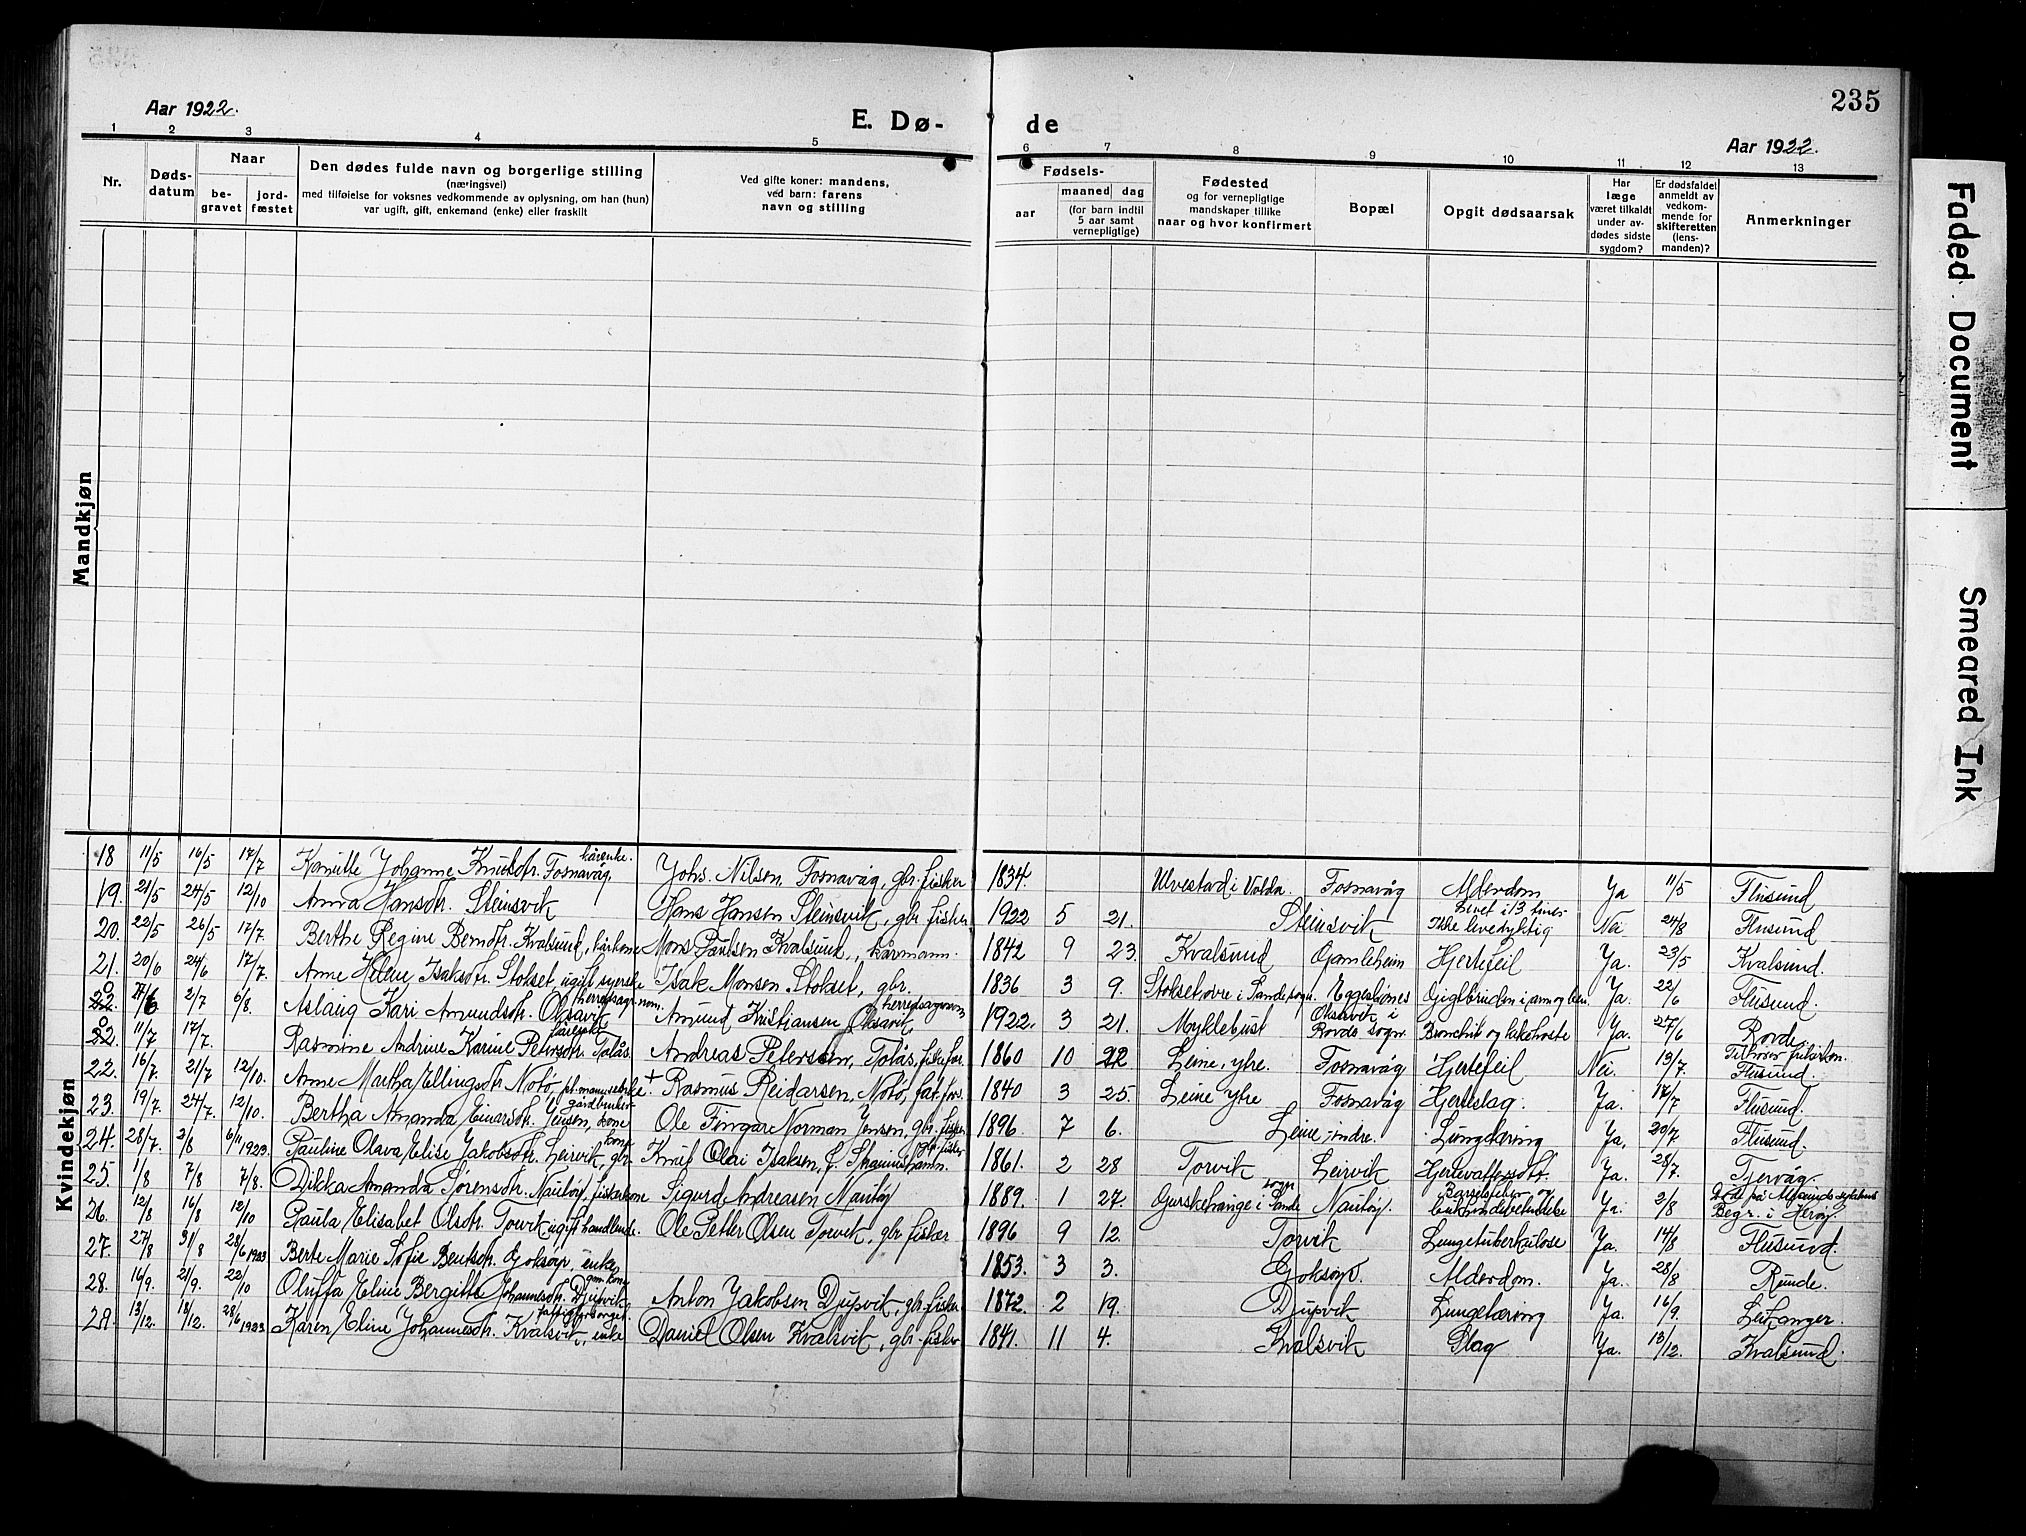 235
Aar 1922.
E. Dø-
de
Aar 1922.
1 2 3 4 5 6 7 8 9 10 11 12 13
Nr.
Døds-
datum
Naar
be-
gravet
jord-
fæstet
Den dødes fulde navn og borgerlige stilling
(næringsvei)
med tilføielse for voksnes vedkommende av oplysning, om han (hun)
var ugift, gift, enkemand (enke) eller fraskilt
Ved gifte koner: mandens,
ved barn: farens
navn og stilling
Fødsels-
aar
maaned dag
(for barn indtil
5 aar samt
vernepligtige)
Fødested
og for vernepligtige
mandskaper tillike
naar og hvor konfirmert
Bopæl
Opgit dødsaarsak
Har
læge
været tilkaldt
under av-
dødes sidste
sygdom?
Er dødsfaldet
anmeldt av
vedkom-
mende for
skifteretten
(lens-
manden)?
Anmerkninger
Mandkjøn
Kvindekjøn
18 11/5 16/5 17/7 Johanne Knutsdtr. Fosnavåg kårenke. Johs. Nilsen, Fosnavåg, gbr. fisker 1834. Ulvestad i Volda. Fosnavåg Alderdom Ja 11/5 Flusund
19. 21/5 24/5 12/10 Anna Hansdtr. Steinsvik Hans Hansen Steinsvik, gbr. fisker 1922 5 21. Steinsvik Levet i 13 timer Ikke levedyktig Nei 24/8 Flusund
20. 22/5 26/5 17/7. Berthe Regine Berndtr. Kvalsund, kårkone Mons Paulsen Kvalsund, kårmann. 1842 9 23. Kvalsund Gamleheim Hjertefeil Ja. 23/5 Kvalsund.
21. 20/6 24/6 17/7. Anne Helene Isaksdtr. Stokset, ugift syerske Isak Monsen Stokset, gbr. 1836 3 9. Stokset øvre i Sande sogn. Eggesbønes Ja. 22/6 Flusund.
0 22. 2/7 6/8 Aslaug Kari Amundsdtr. Oksavik Amund Kristiansen Oksavik 1922. 3 21. Myklebust Oksavik i Rovde sogn. Bronchit og kikhoste Ja. 27/6 Rovde.
0 22 11/7 17/7. Rasmine Andrine Karine Petersdtr. Tolås Andreas Petersen, Tolås, 1860 10 22 Leine, ytre. Fosnavåg Hjertefeil Nei. 13/7.
22. 16/7. 21/7 12/10. Anne Martha Ellingsdtr. Notø, + Rasmus Reidarsen, Notø, 1840 3 25. Leine ytre Fosnavåg Hjerteslag. Ja. 17/7 Flusund.
23. 19/7. 24/7. 12/10. Bertha Amanda Einarsdtr. Jensen, gårdbruker kone Ole Fingare Norman Jensen, gbr. fisker 1896 7 6. Leine, indre. Lungetæring Ja, 20/7 Flusund.
24. 28/7. 2/8 6/11 1923. Pauline Olava Elise Jakobsdtr. Leirvik, gbr. kone Knut Olai Isaksen, f. 1861. 2 28 Torvik Leirvik Ja. 28/7. Tjervåg.
25. 1/8 7/8 7/8. Dikka Amanda Sørensdtr. Nautøy, fiskerkone Sigurd Andreasen Nautøy 1889. 1 27. Gurskehange i Sande sogn Nautøy. Barselfeber Ja. 2/8 Begr. i Herøy.
26. 12/8 16/8 12/10 Paula Elisabet Olsdtr. Torvik ugift handlende. Ole Petter Olsen Torvik, gbr. fisker 1896 9 12. Torvik Lungetuberkulose Ja. 14/8 Flusund.
27. 27/8 31/8 28/6 1923 Berte Marie Sofie Bentsdtr. Goksøyr, enke 1853. 3 3. Goksøyr. Alderdom. Ja. 28/8 Runde.
28. 16/9. 21/9. 22/10 Oluffa Eline Bergitte Johannesdtr. Djupvik Anton Jakobsen Djupvik, gbr. fisker 1872. 2 19. Djupvik Lungetæring Ja. 16/9. Leikanger.
29. 13/12. 18/12. 28/6 1923 Karen Eline Johannesdtr. Kvalsvik, enke Daniel Olsen Kvalsvik, gbr. fisker 1841. 11 4. Kvalsvik Slag Ja. 13/12. Kvalsund.
Faded Document
Smeared Ink